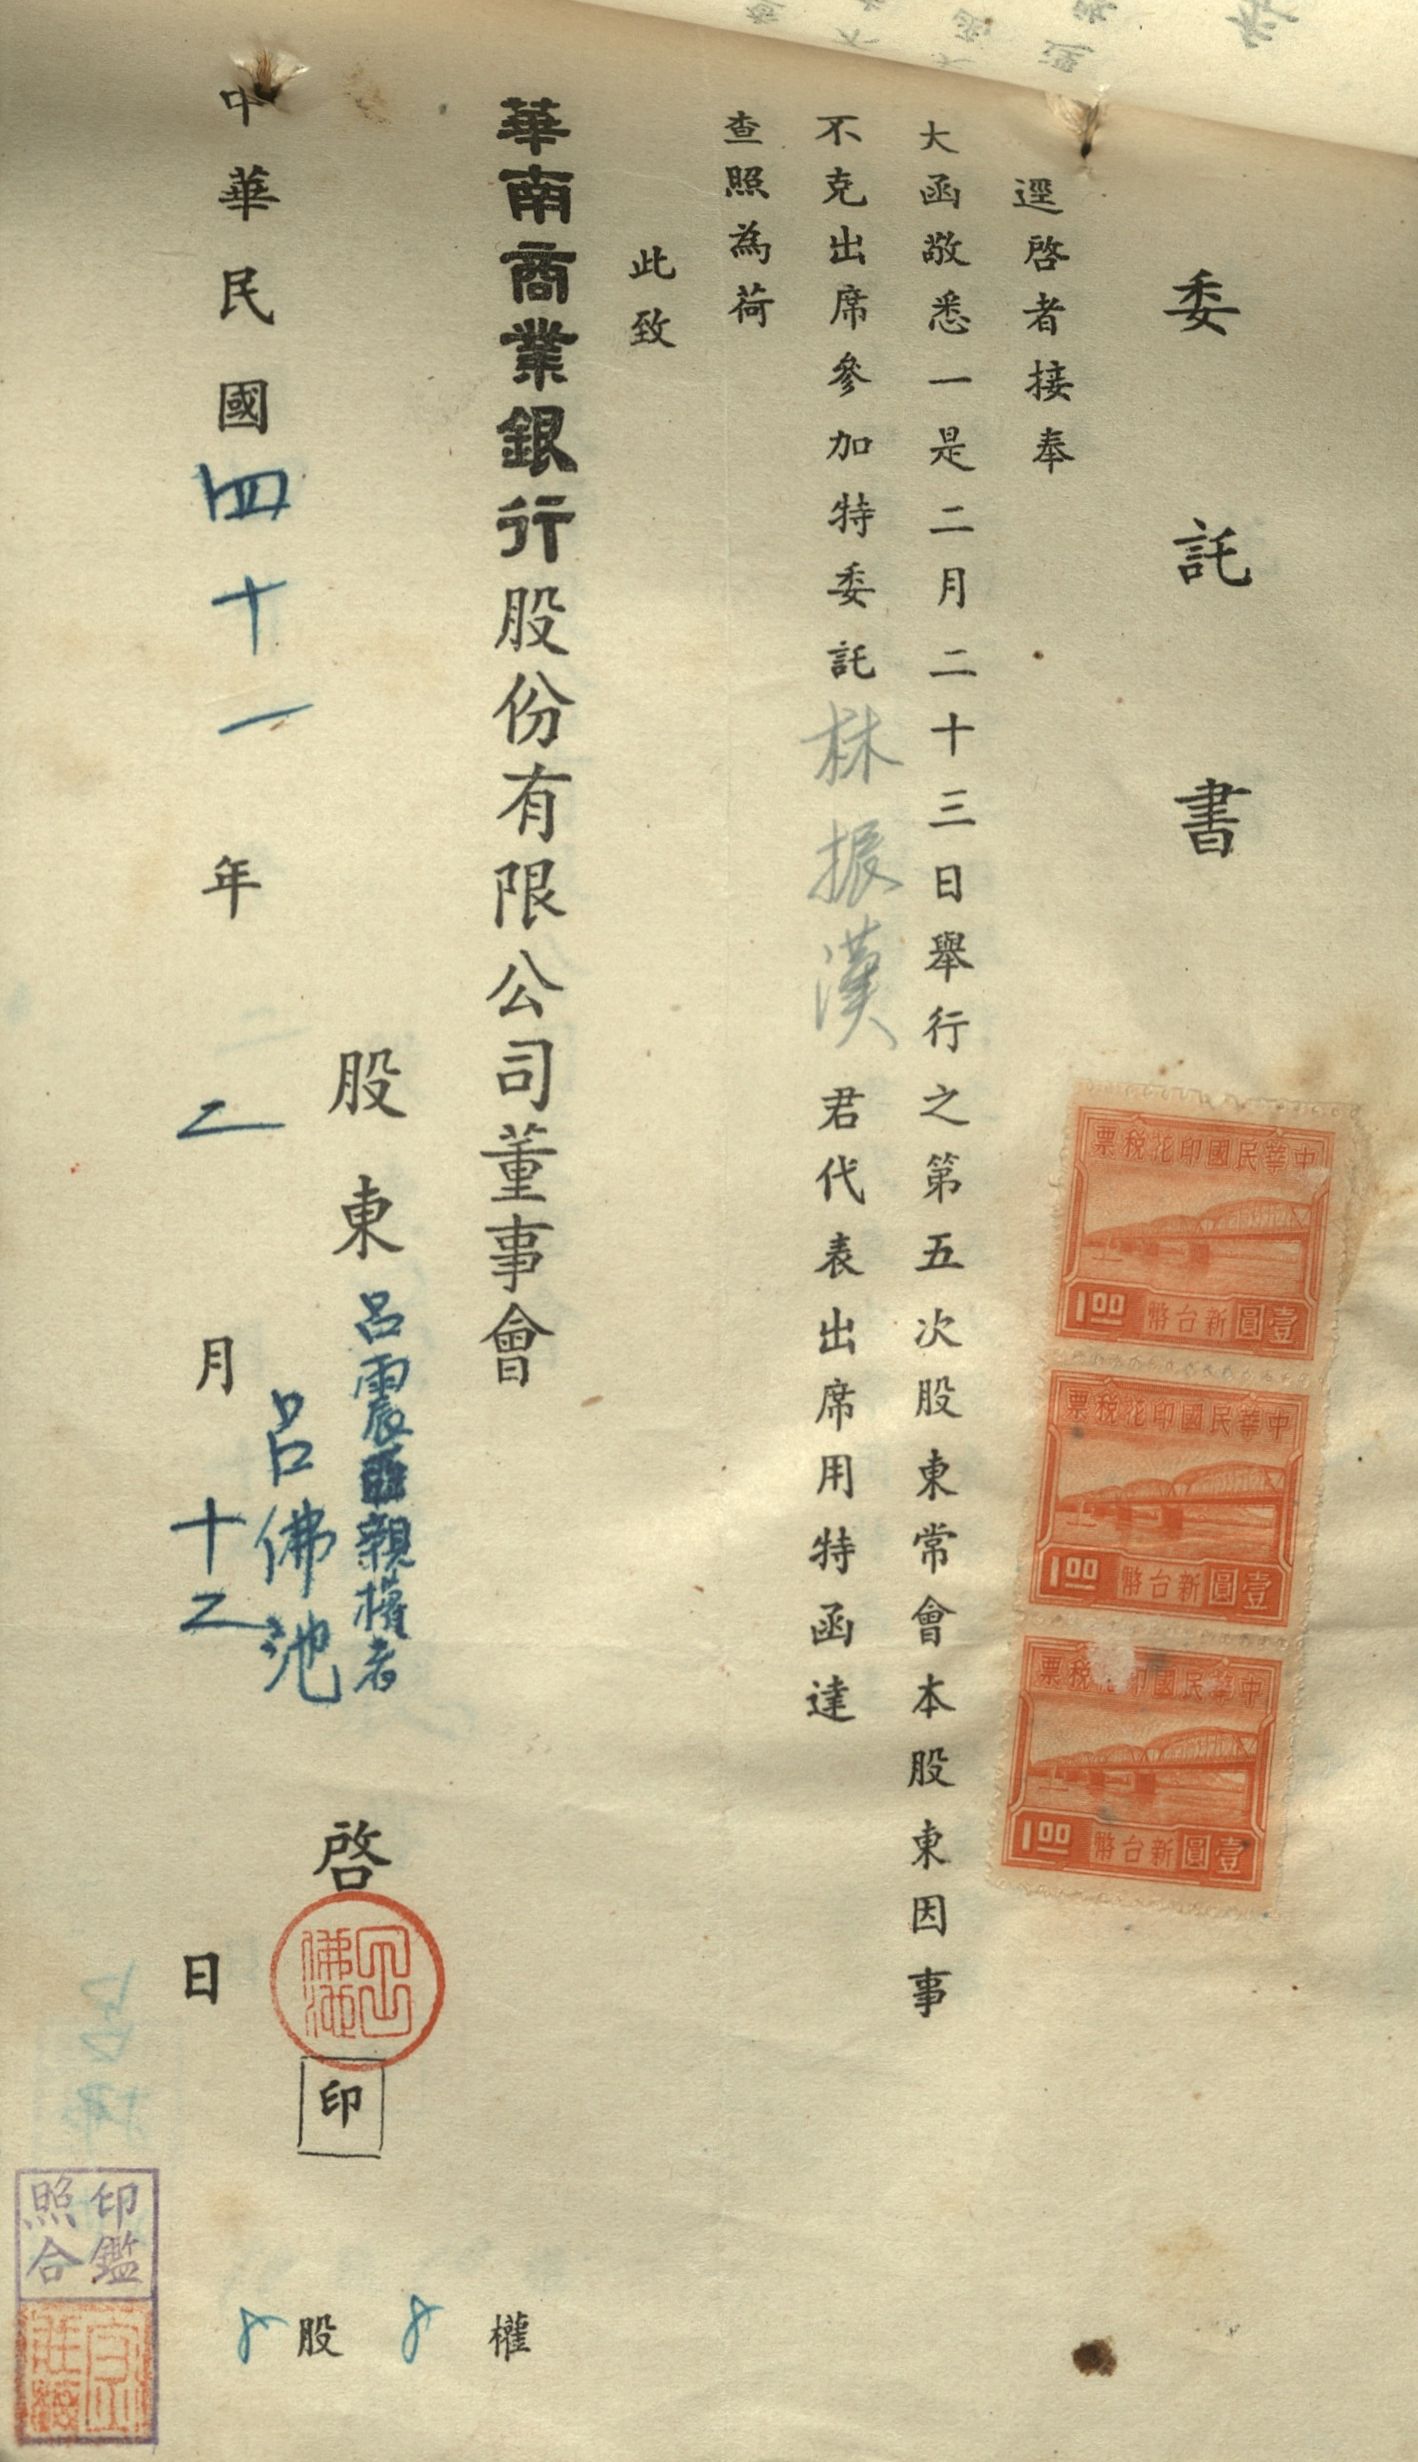 委託書
逕啓者接奉
大函敬悉一是二月二十三日舉行之第五次股東常會本股東因事
不克出席參加特委託林振漢君代表出席用特函達
查照為荷
此致
華南商業銀行股份有限公司董事會
股東 呂震 親權者
呂佛池 啓
印
中華民國四十一年二月十二日
8股8權
中華民國印花稅票
新台幣壹圓
1.00
中華民國印花稅票
新台幣壹圓
1.00
中華民國印花稅票
新台幣壹圓
1.00
呂佛池
印鑑
照合